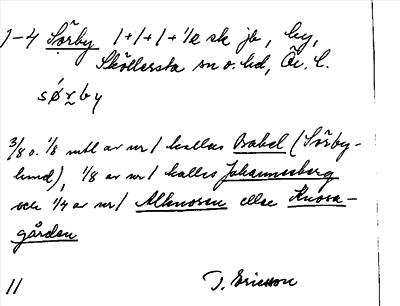 1-4 Sörby 1+1+1+1/2 sk jb, by,
Sköllersta sn o. hd, Ör. l.
sǿrby
3/8 o. 1/8 mtl av nr 1 kallas Babel (Sörby-
lund), 1/8 av nr 1 kallas Johannesberg
och 1/4 av nr 1 Almosen eller Knosa-
gården
11 T. Ericsson